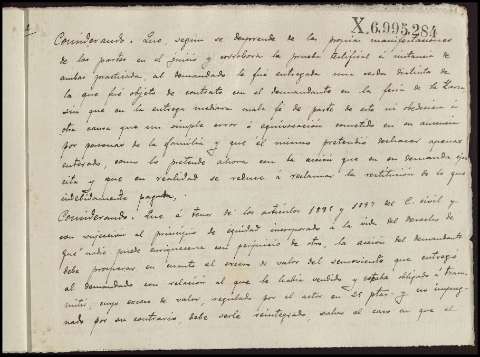 X.6.995.284
Considerando: Que, según se desprende de las propias manifestaciones
de las partes en el juicio y corrobora la prueba testifical á instancia de
ambas practicada, al demandado le fué entregada una cerda distinta de
la que fué objeto de contrato con el demandante en la feria de
sin que en la entrega mediara mala fé de parte de este ni obedeciera á
otra causa que un simple error ó equivocación cometido en su ausencia
por personas de la familia y que él mismo pretendió deshacer apenas
enterado, como lo pretende ahora con la acción que en su demanda ejer
cita y que en realidad se reduce á reclamar la restitución de lo que
indebidamente pagado.
Considerando: Que á tenor de los artículos 1895 y 1897 del C. civil y
con sujeccion al principio de equidad incorporado á la vida del derecho de
que nadie puede enriquecerse con perjuicio de otro, la acción del demandante
debe prosperar en cuanto al exceso de valor del semoviente que entregó
al demandado con relación al que le había vendido y estaba obligado á trans
mitir, cuyo exceso de valor, regulado por el actor en 25 ptas. y no impug-
nado por su contrario debe serle reintegrado, salvo el caso en que el